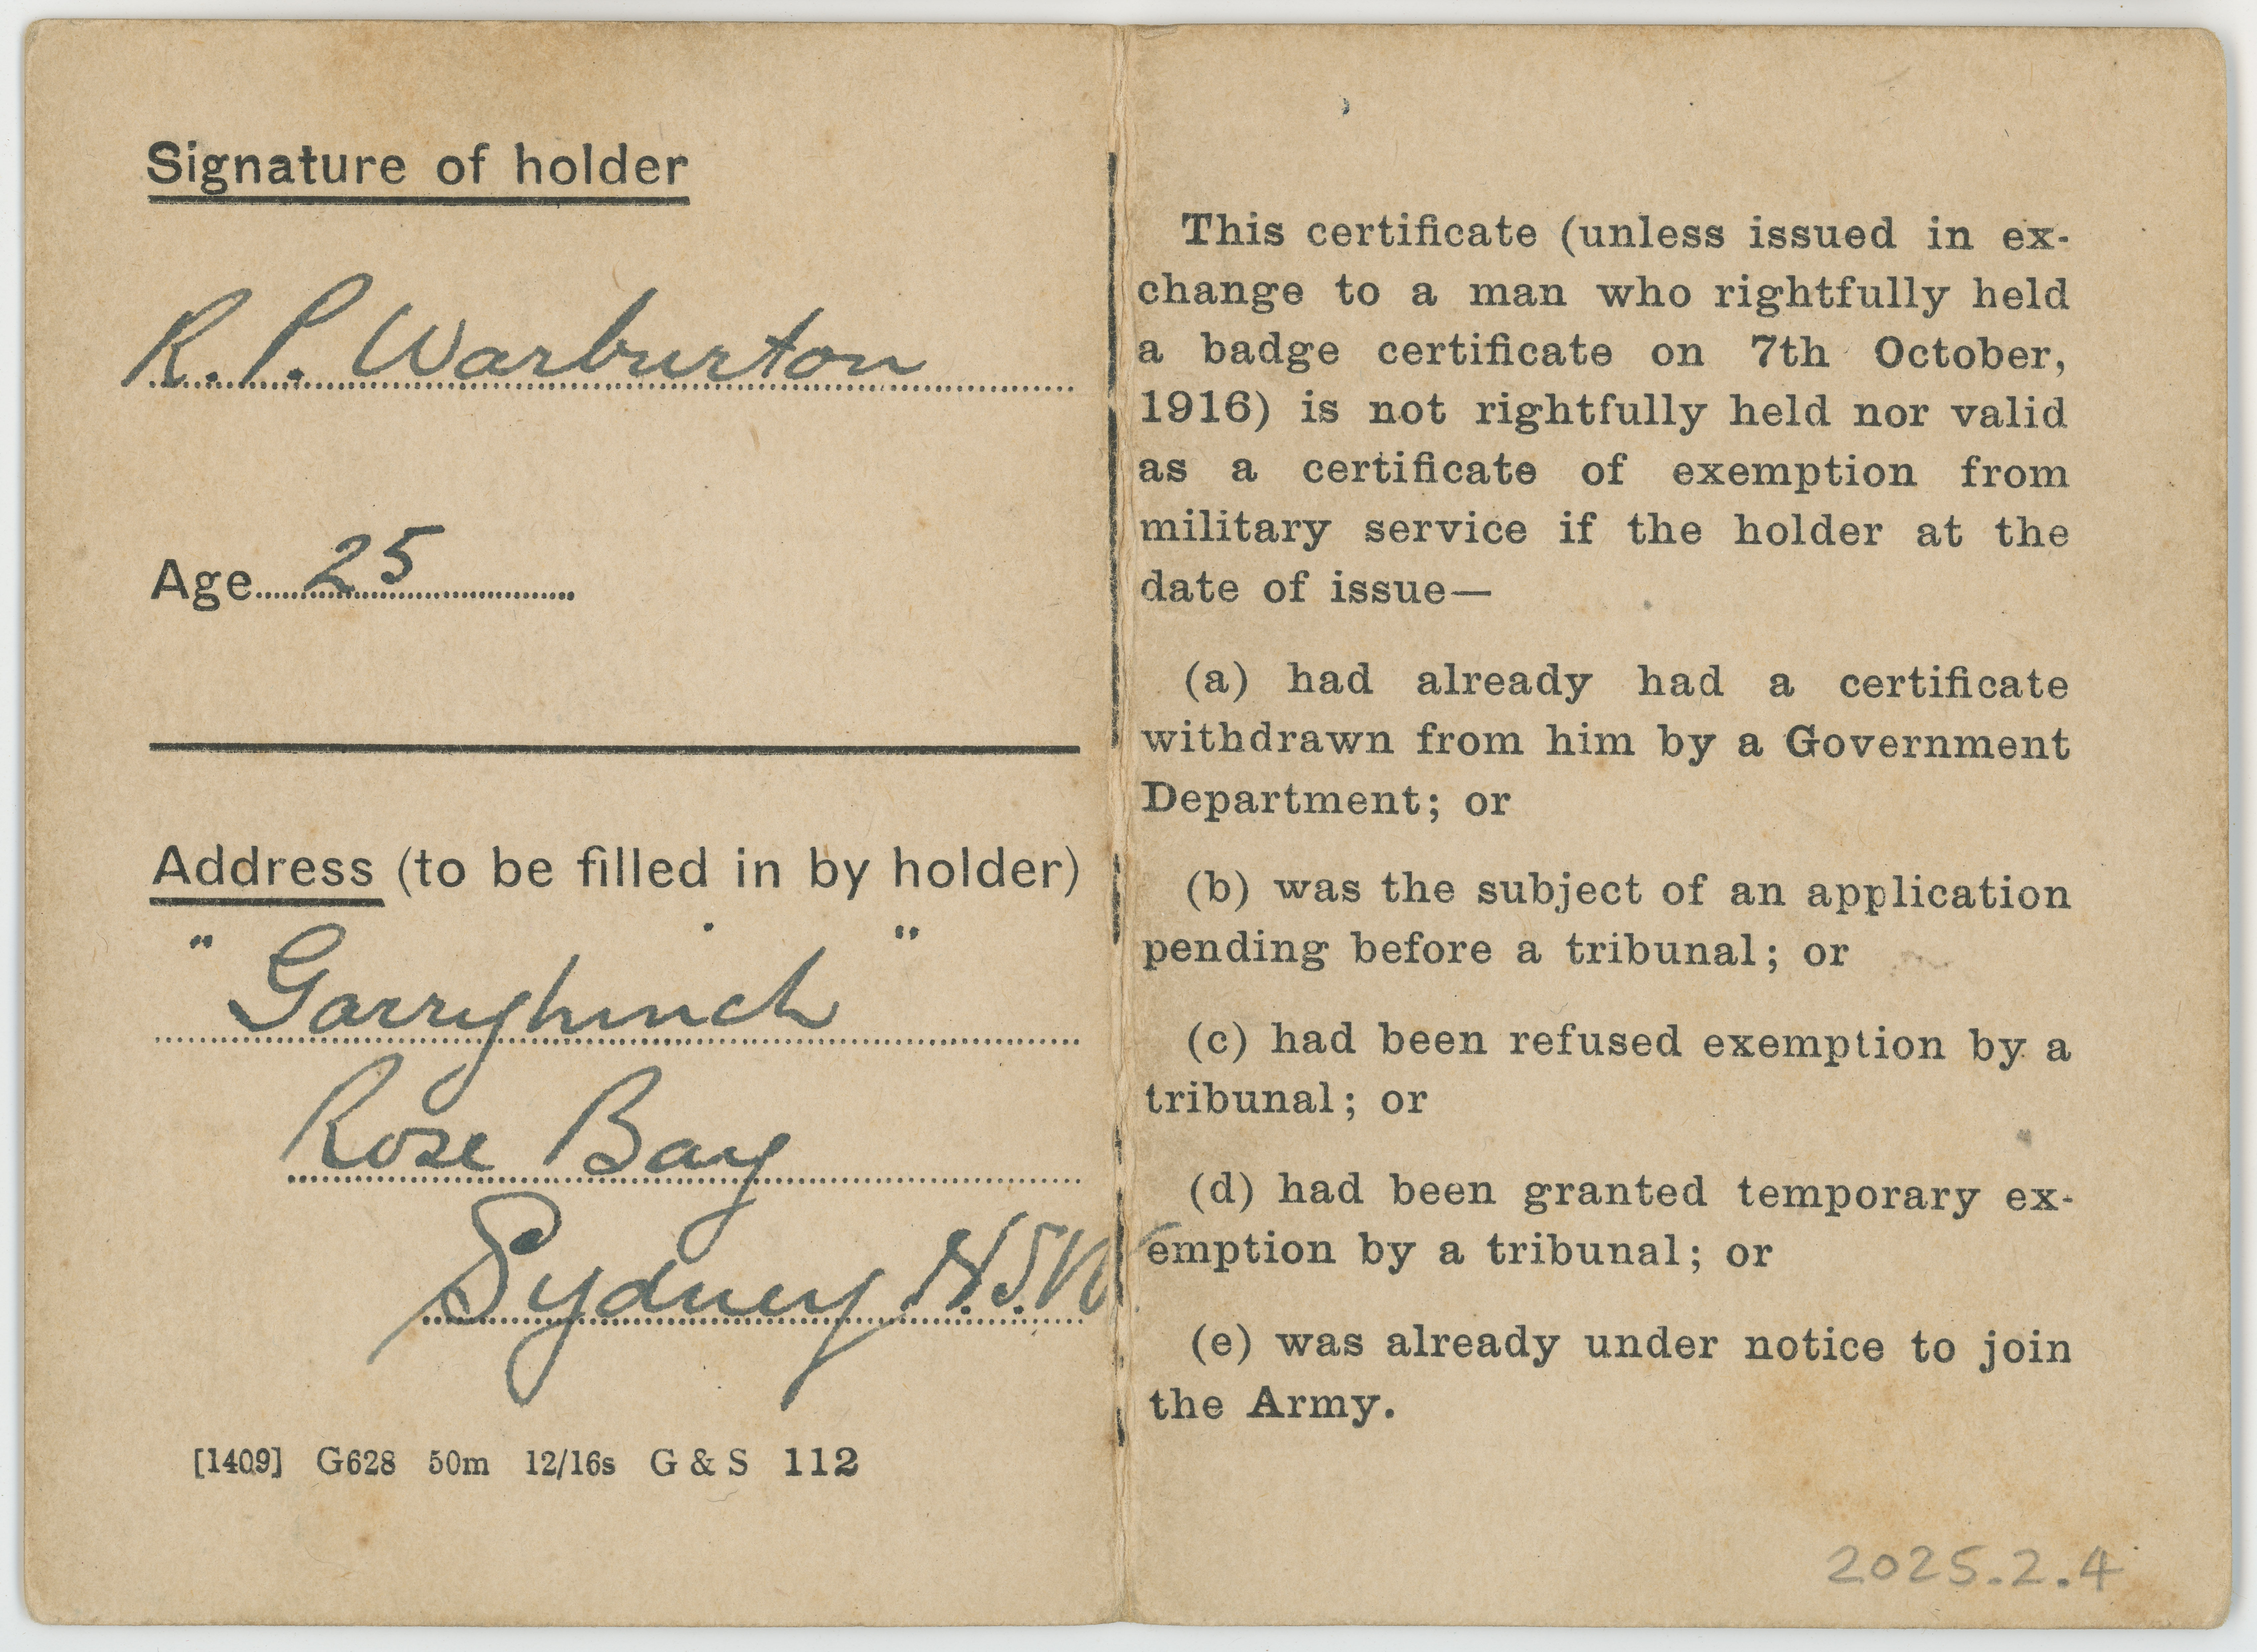 Signature of holder
R. P. Warburton
Age 25
Address (to be filled in by holder)
"Garryhinch"
Rose Bay
Sydney N.S.W
[1409] G628 50m 12/16s G & S 112
This certificate (unless issued in ex-
change to a man who rightfully held
a badge certificate on 7th October,
1916) is not rightfully held nor valid
as a certificate of exemption from
military service if the holder at the
date of issue—
(a) had already had a certificate
withdrawn from him by a Government
Department; or
(b) was the subject of an application
pending before a tribunal; or
(c) had been refused exemption by a
tribunal; or
(d) had been granted temporary ex-
emption by a tribunal; or
(e) was already under notice to join
the Army.
2025.2.4